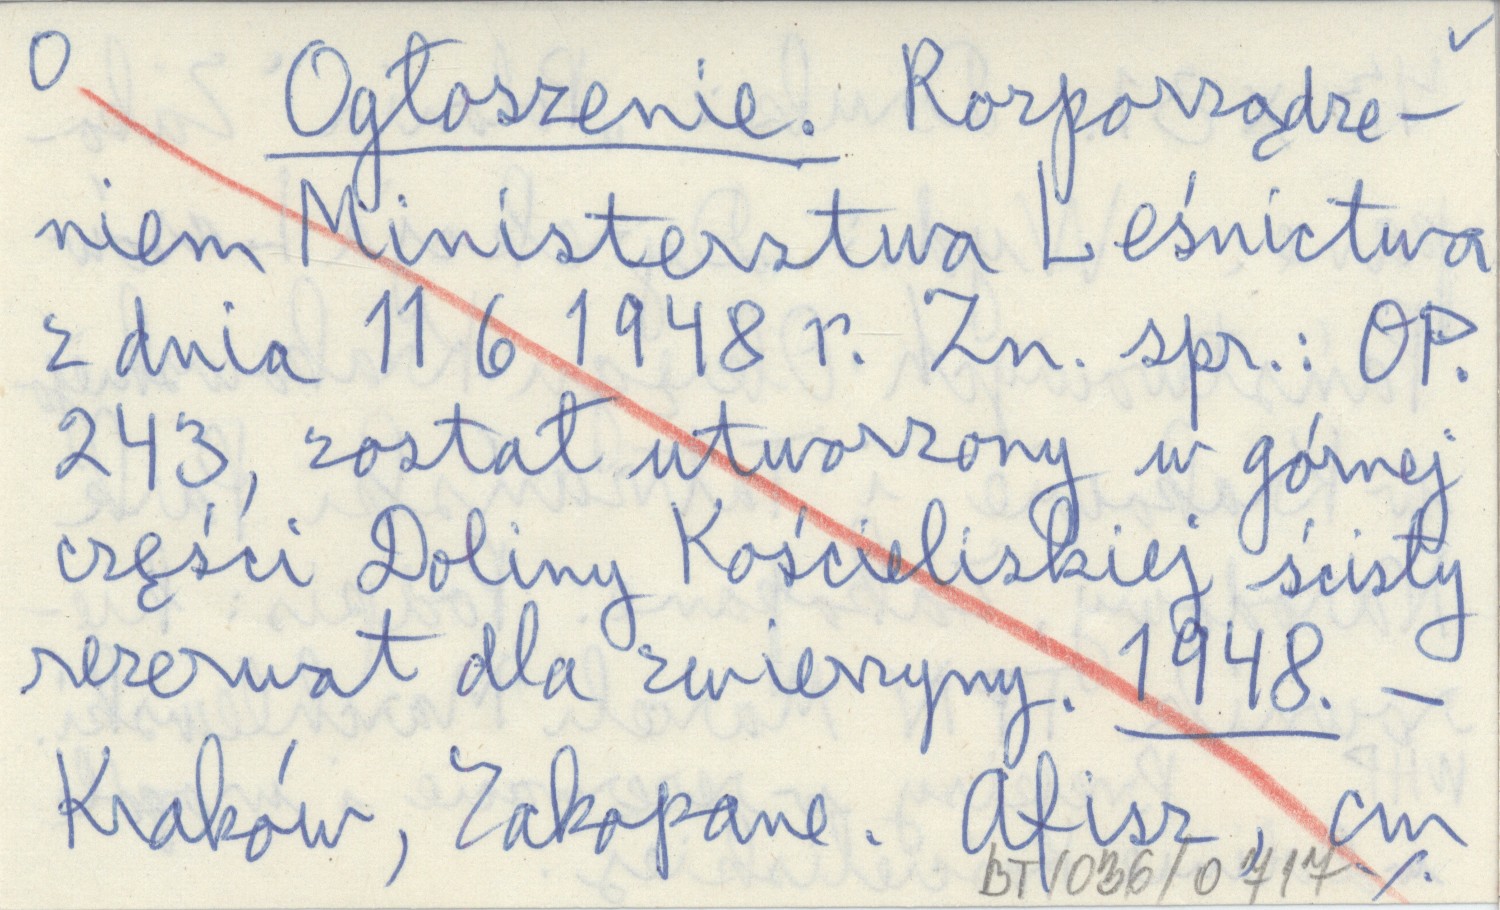 O
Ogłoszenie. Rozporządze-
niem Ministerstwa Leśnictwa
z dnia 11 6 1948 r. Zn. spr.: OP.
243, został utworzony w górnej
części Doliny Kościeliskiej ścisły
rezerwat dla zwierzyny. 1948. —
Kraków, Zakopane. Afisz, cm
BT/036/0717 ./.